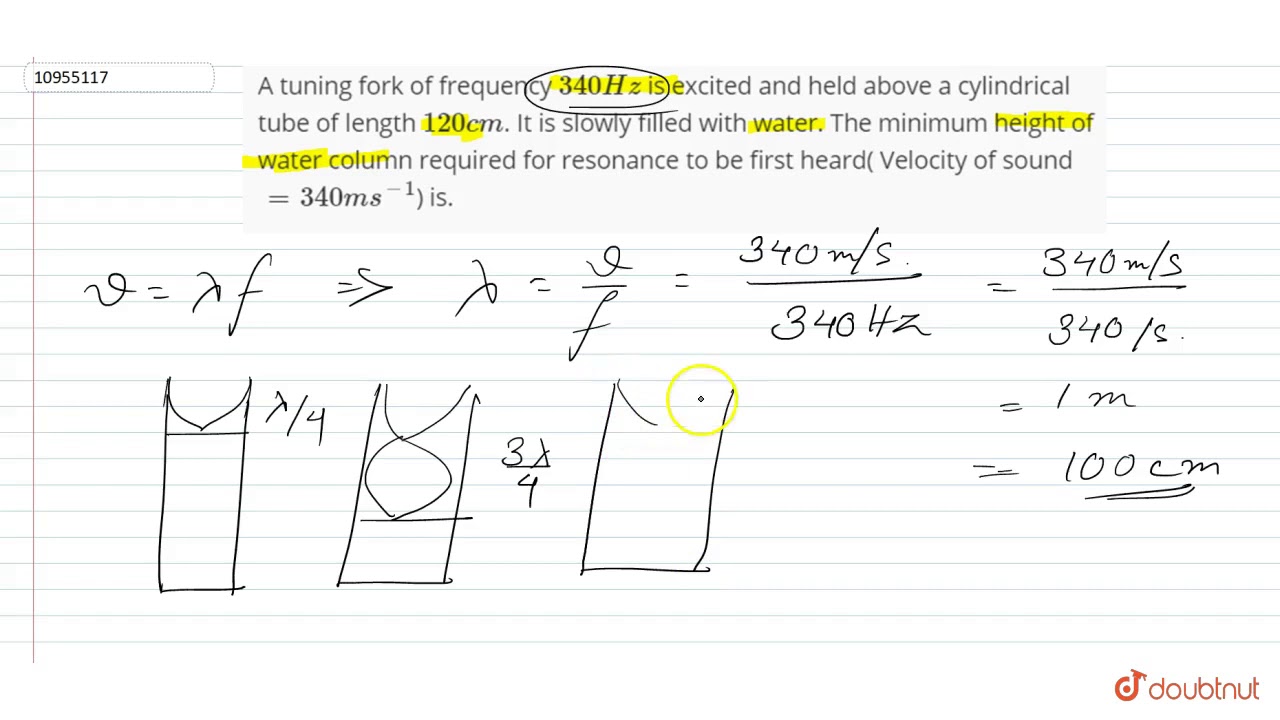 10955117
A tuning fork of frequency 340Hz is excited and held above a cylindrical
tube of length 120cm. It is slowly filled with water. The minimum height of
water column required for resonance to be first heard( Velocity of sound
= 340ms⁻¹) is.
v = λf ⇒ λ = v/f = 340 m/s. / 340 HZ = 340 m/s / 340 /s.
= 1 m
= 100 cm
λ/4
3λ/4
doubtnut